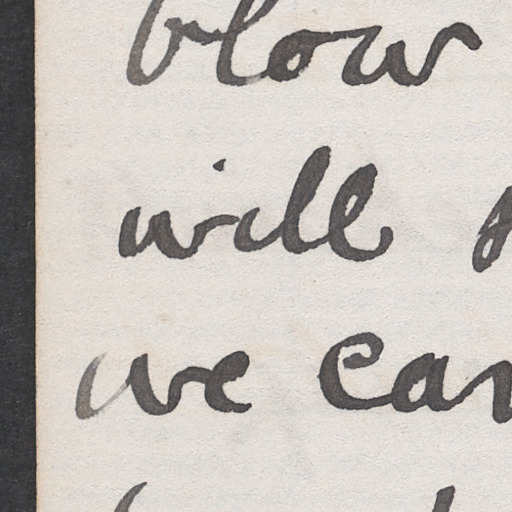 blow
will
we can